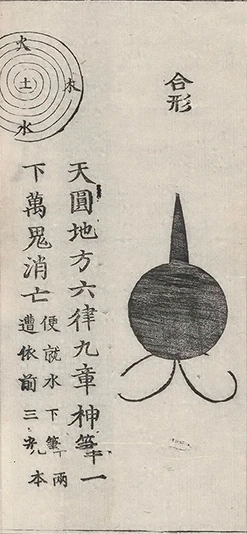 合形
天圓地方六律九章神筆一
下萬鬼消亡
便就水下筆兩
遭依前三
本
火
木
土
水